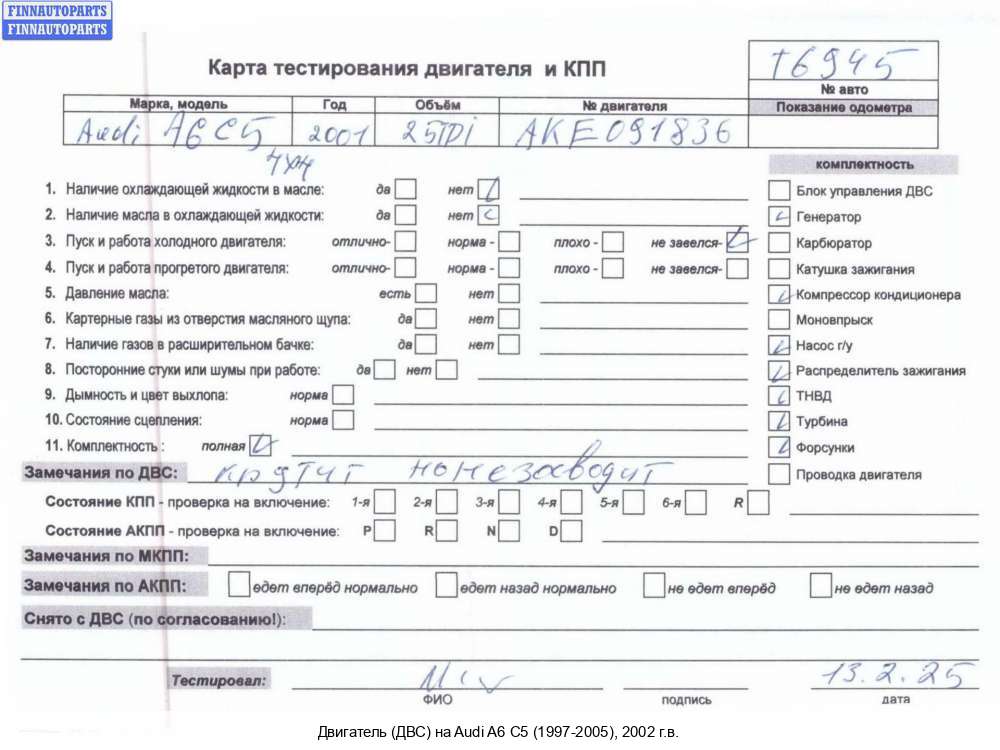 FINNAUTOPARTS
FINNAUTOPARTS
Карта тестирования двигателя и КПП
т6945
№ авто
Марка, модель Год Объём № двигателя Показание одометра
Audi A6 C5 2001 25TDi AKE091836
4x4
комплектность
1. Наличие охлаждающей жидкости в масле: да нет Блок управления ДВС
2. Наличие масла в охлаждающей жидкости: да нет Генератор
3. Пуск и работа холодного двигателя: отлично- норма - плохо - не завелся- Карбюратор
4. Пуск и работа прогретого двигателя: отлично- норма - плохо - не завелся- Катушка зажигания
5. Давление масла: есть нет Компрессор кондиционера
6. Картерные газы из отверстия масляного щупа: да нет Моновпрыск
7. Наличие газов в расширительном бачке: да нет Насос г/у
8. Посторонние стуки или шумы при работе: да нет Распределитель зажигания
9. Дымность и цвет выхлопа: норма ТНВД
10. Состояние сцепления: норма Турбина
11. Комплектность : полная Форсунки
Замечания по ДВС: крутит но не заводит Проводка двигателя
Состояние КПП - проверка на включение: 1-я 2-я 3-я 4-я 5-я 6-я R
Состояние АКПП - проверка на включение: P R N D
Замечания по МКПП:
Замечания по АКПП: едет вперёд нормально едет назад нормально не едет вперёд не едет назад
Снято с ДВС (по согласованию!):
Тестировал: 13.2.25
ФИО подпись дата
Двигатель (ДВС) на Audi A6 C5 (1997-2005), 2002 г.в.